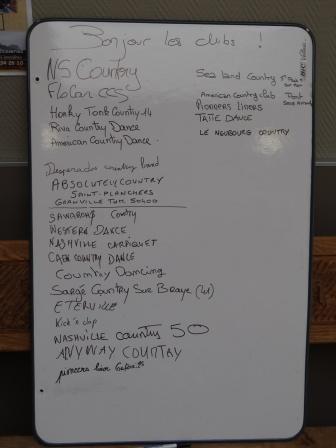 Bonjour les clubs !
NS Country
FloCan CCS
Honky Tonk Country 14
Riva Country Dance
American Country Dance.
Desperados country band
ABSOLUTELY COUNTRY
SAINT-PLANCHERS
GRANVILLE TUR. 50400
COUNTRY
WESTERN DANCE
NASHVILLE CARPIQUET
CAEN COUNTRY DANCE
Country Dancing
Sargé Country Sur Braye (41)
ETERVILLE
Kick'n clap
NASHVILLE country 50
ANYWAY COUNTRY
pioneers liner
Sea land Country
American Country club
PIONEERS LINERS
TATIE DANCE
LE NEUBOURG COUNTRY